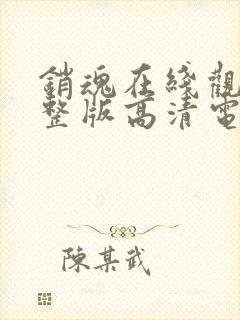 銷魂在綫觀
整版高清電
陳某武